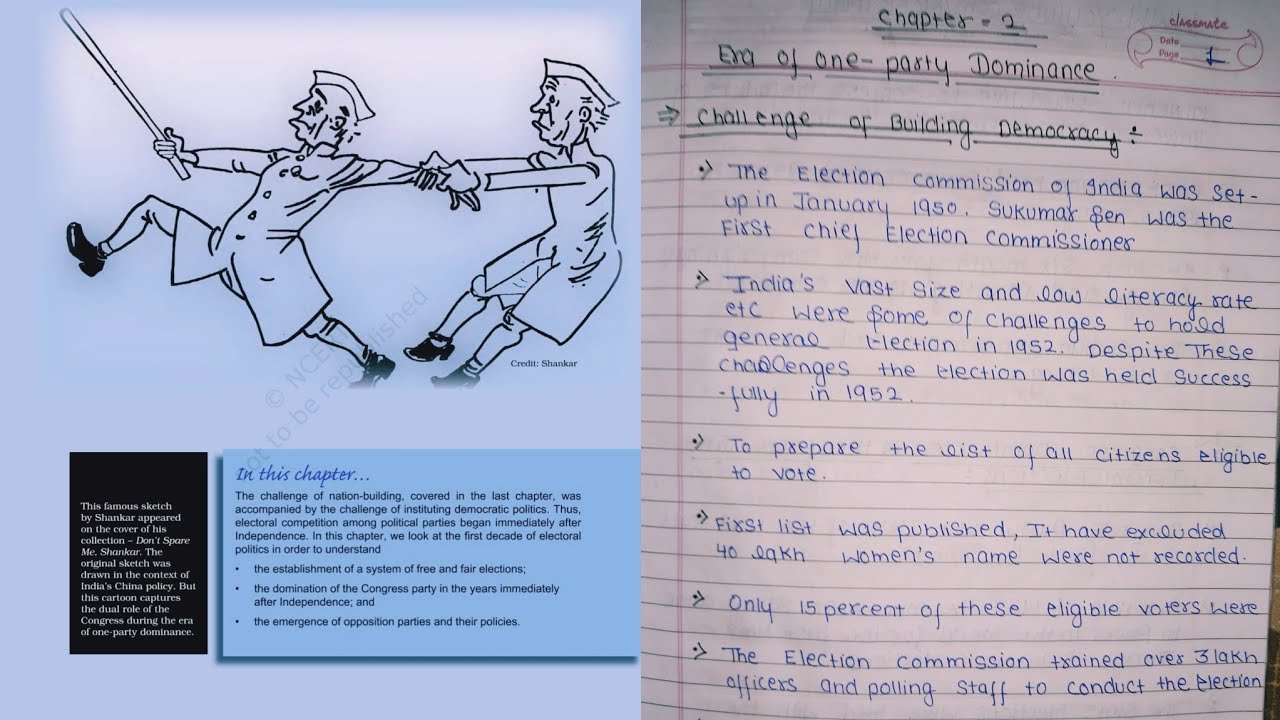 Credit: Shankar
© NCERT
not to be republished
This famous sketch
by Shankar appeared
on the cover of his
collection – Don't Spare
Me, Shankar. The
original sketch was
drawn in the context of
India's China policy. But
this cartoon captures
the dual role of the
Congress during the era
of one-party dominance.
In this chapter...
The challenge of nation-building, covered in the last chapter, was
accompanied by the challenge of instituting democratic politics. Thus,
electoral competition among political parties began immediately after
Independence. In this chapter, we look at the first decade of electoral
politics in order to understand
• the establishment of a system of free and fair elections;
• the domination of the Congress party in the years immediately
after Independence; and
• the emergence of opposition parties and their policies.
Chapter = 2
classmate
Date
Page 1
Era of one-party Dominance.
⇒ Challenge of Building Democracy ÷
The Election commission of India was set-
up in January 1950. Sukumar Sen was the
First chief Election commissioner
India's vast size and low literacy rate
etc were some of challenges to hold
general Election in 1952. Despite These
challenges the Election was held success
-fully in 1952.
To prepare the list of all citizens eligible
to vote.
First list was published, It have excluded
40 lakh women's name were not recorded.
Only 15 percent of these eligible voters were
The Election commission trained over 3 lakh
officers and polling staff to conduct the Election